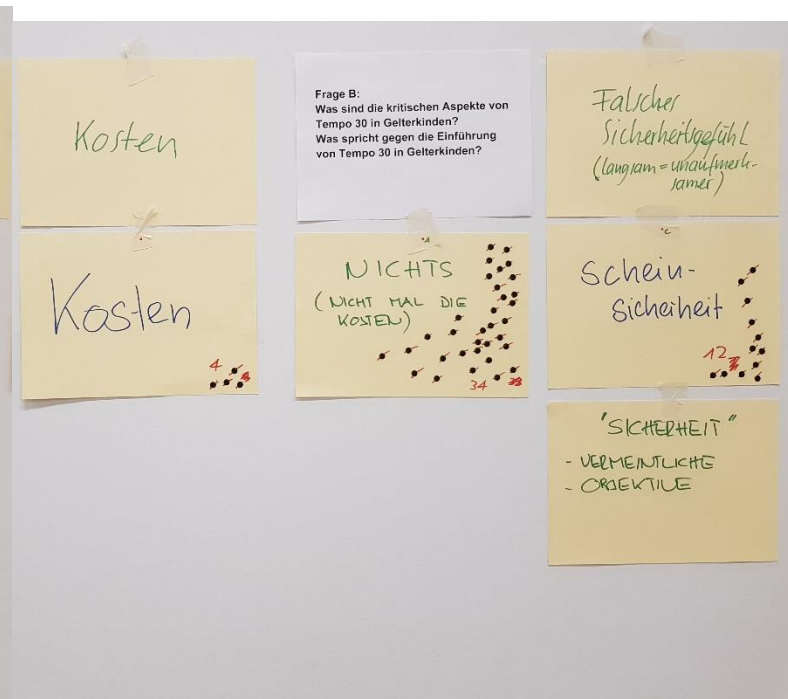 Kosten
Kosten
4
Frage B:
Was sind die kritischen Aspekte von
Tempo 30 in Gelterkinden?
Was spricht gegen die Einführung
von Tempo 30 in Gelterkinden?
A
NICHTS
(NICHT MAL DIE
KOSTEN)
34
Falsches
Sicherheitsgefühl
(langsam = unaufmerk-
samer)
C
Schein-
Sicherheit
12
"SICHERHEIT"
- VERMEINTLICHE
- OBJEKTIVE